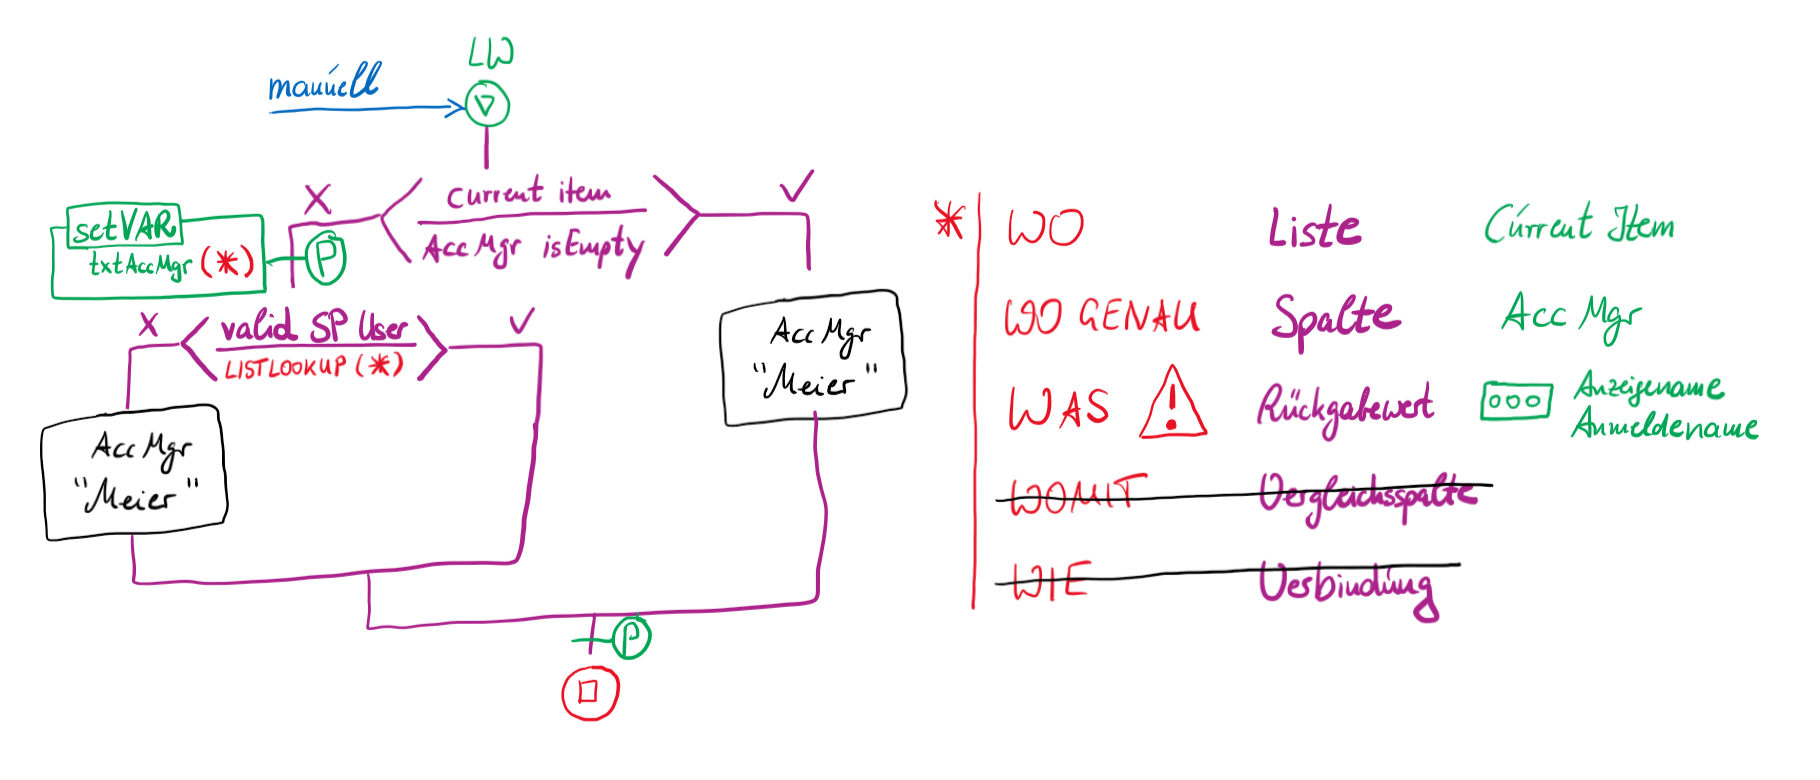 LW
manuell
X
Current item
✓
AccMgr isEmpty
setVAR
txtAccMgr (*)
P
X
valid SP User
✓
LISTLOOKUP (*)
AccMgr
"Meier"
AccMgr
"Meier"
P
* WO Liste Current Item
WO GENAU Spalte Acc Mgr
WAS ! Rückgabewert ooo Anzeigename
Anmeldename
WOMIT Vergleichsspalte
WIE Verbindung